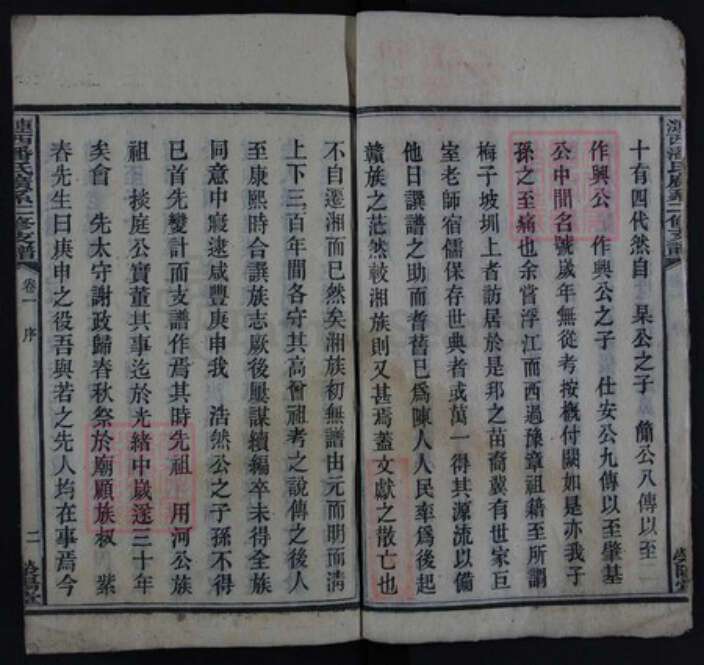 十有四代然自　杲公之子　簡公八傳以至
作興公　作興公之子　仕安公九傳以至肇基
公中間名號歲年無從考按概付闕如是亦我子
孫之至痛也余嘗浮江而西過豫章祖籍至所謂
梅子坡圳上者訪居於是邦之苗裔冀有世家巨
室老師宿儒保存世典者或萬一得其源流以備
他日譔譜之助而耆舊已爲陳人人民率爲後起
贛族之茫然較湘族則又甚焉蓋文獻之散亡也
不自遷湘而已然矣湘族初無譜由元而明而清
上下三百年間各守其高曾祖考之說傳之後人
至康熙時合譔族志厥後屢謀續編卒未得全族
同意中寢逮咸豐庚申我　浩然公之子孫不得
已首先變計而支譜作焉其時先祖　用河公族
祖　掞庭公實董其事迄於光緒中歲遂三十年
矣會　先太守謝政歸春秋祭於廟顧族叔　紫
春先生曰庚申之役吾與若之先人均在事焉今
漣西潘氏房系二修支譜
卷一　序
二